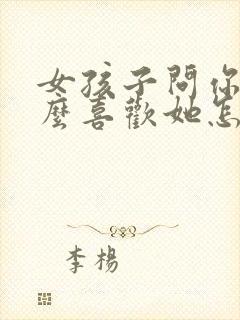 女孩子問你
麼喜歡她怎
李楊